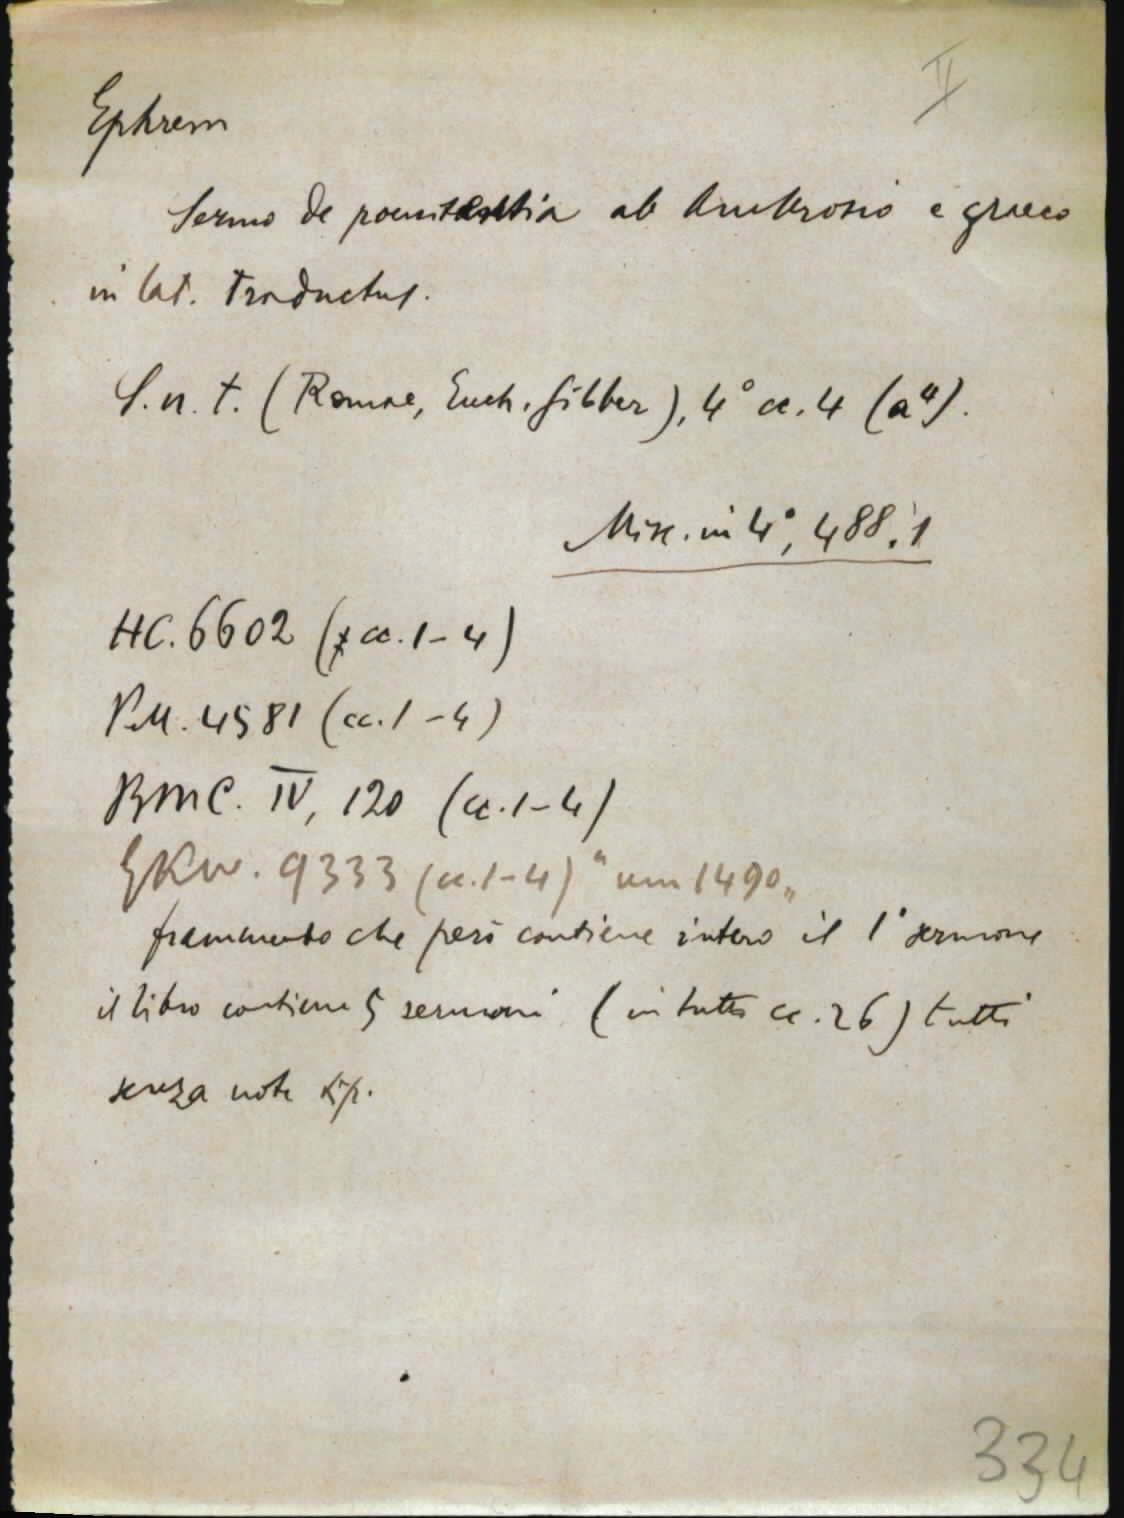 II
Ephrem
Sermo de poenitentia ab Ambrosio e graeco
in lat. traductus.
S. n. t. (Romae, Euch. Silber), 4° cc. 4 (a⁴).
Misc. in 4°, 488.1
HC. 6602 (cc. 1-4)
Pell. 4581 (cc. 1-4)
BMC. IV, 120 (cc. 1-4)
GKW. 9333 (cc. 1-4) "um 1490"
frammento che però contiene intero il 1° sermone
il libro contiene 5 sermoni (in tutto cc. 26) tutti
senza note tip.
334